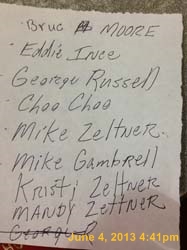 Bruc MOORE
Eddie Ince
George Russell
Choo Choo
Mike Zeltner
Mike Gambrell
Kristi Zeltner
MANDY ZELTNER
GEORGE
June 4, 2013 4:41pm